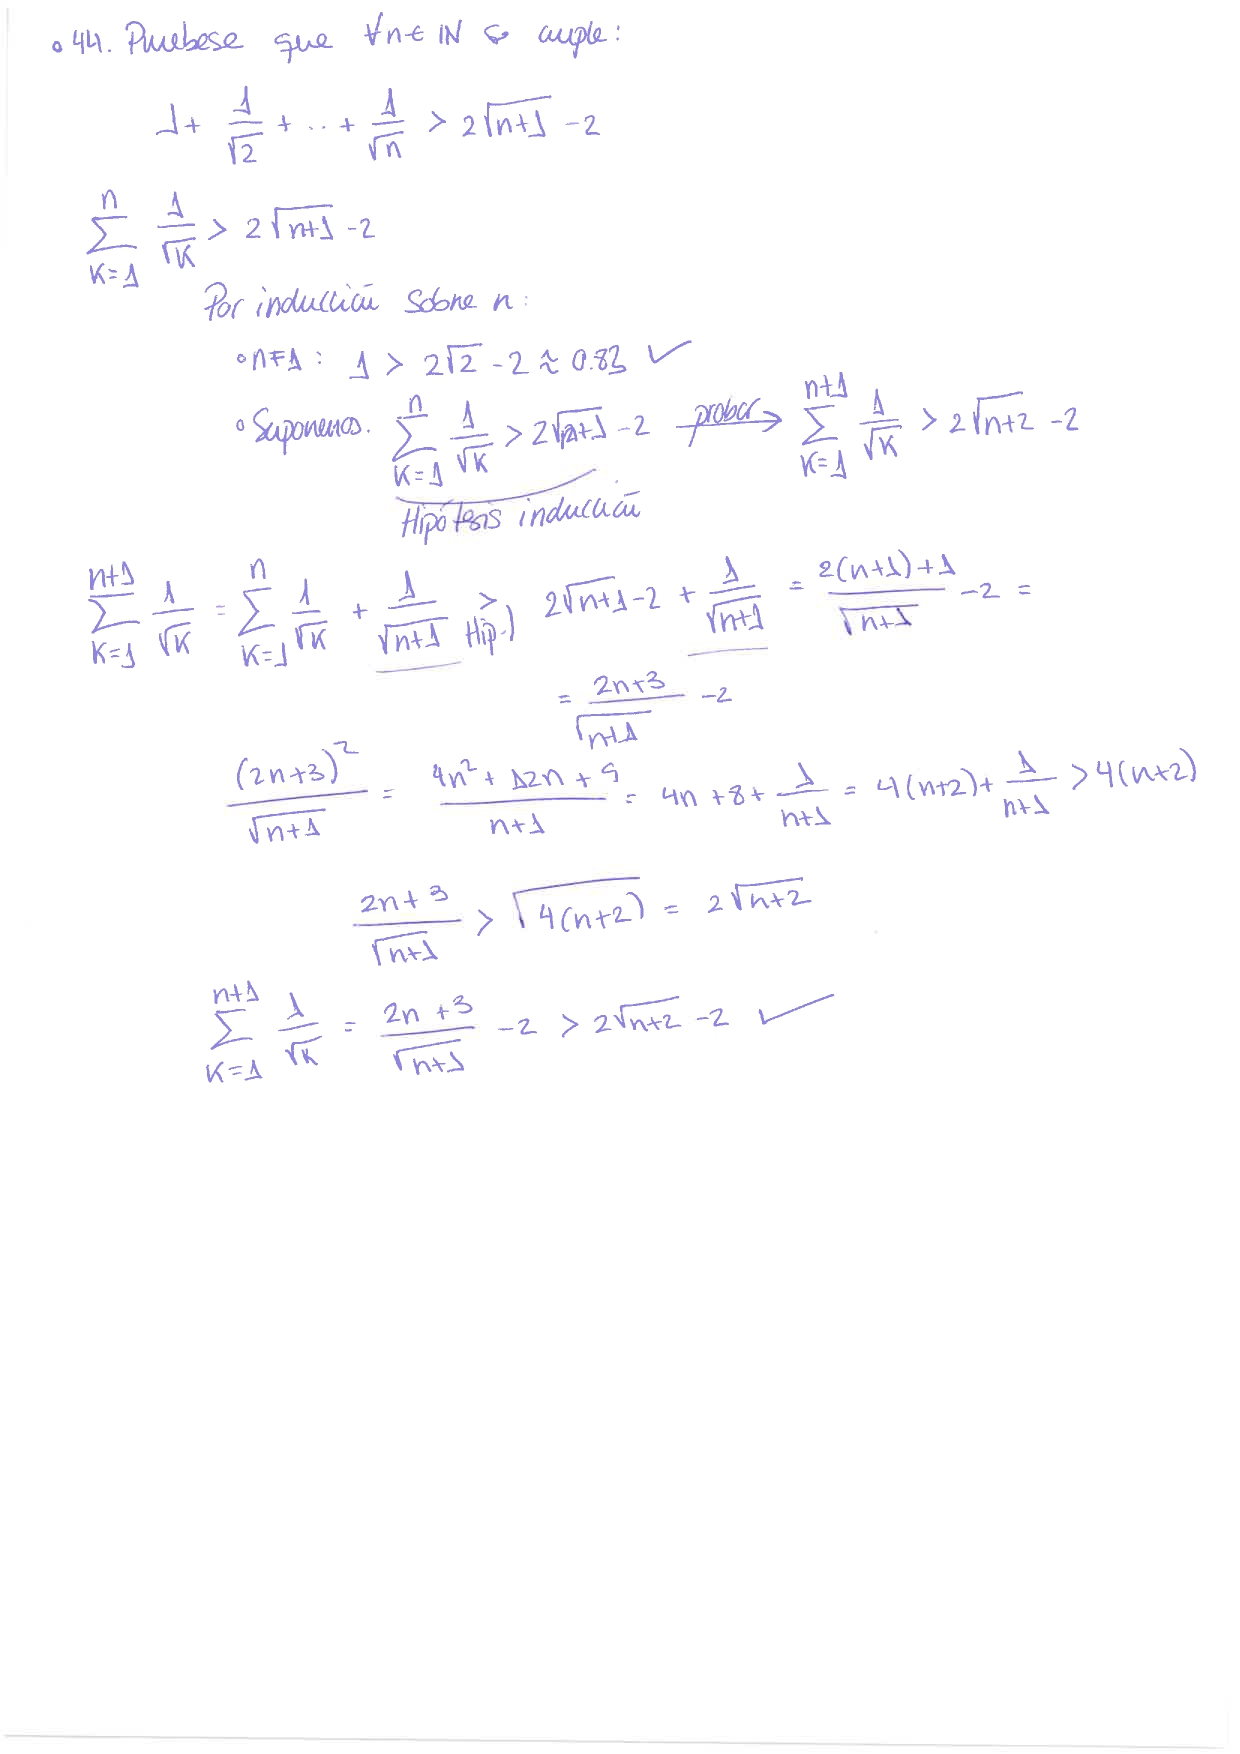 • 44. Pruebese que ∀n∈ℕ se cumple:
1 + 1/√2 + ... + 1/√n > 2√(n+1) - 2
∑_{K=1}^{n} 1/√K > 2√(n+1) - 2
Por inducción sobre n:
• n=1: 1 > 2√2 - 2 ≈ 0.83 ✓
• Suponemos. ∑_{K=1}^{n} 1/√K > 2√(n+1) - 2 probar→ ∑_{K=1}^{n+1} 1/√K > 2√(n+2) - 2
Hipótesis inducción
∑_{K=1}^{n+1} 1/√K = ∑_{K=1}^{n} 1/√K + 1/√(n+1) > Hip.) 2√(n+1) - 2 + 1/√(n+1) = (2(n+1)+1)/√(n+1) - 2 =
= (2n+3)/√(n+1) - 2
(2n+3)²/√(n+1) = (4n² + 12n + 9)/(n+1) = 4n + 8 + 1/(n+1) = 4(n+2) + 1/(n+1) > 4(n+2)
(2n+3)/√(n+1) > √(4(n+2)) = 2√(n+2)
∑_{K=1}^{n+1} 1/√K = (2n+3)/√(n+1) - 2 > 2√(n+2) - 2 ✓